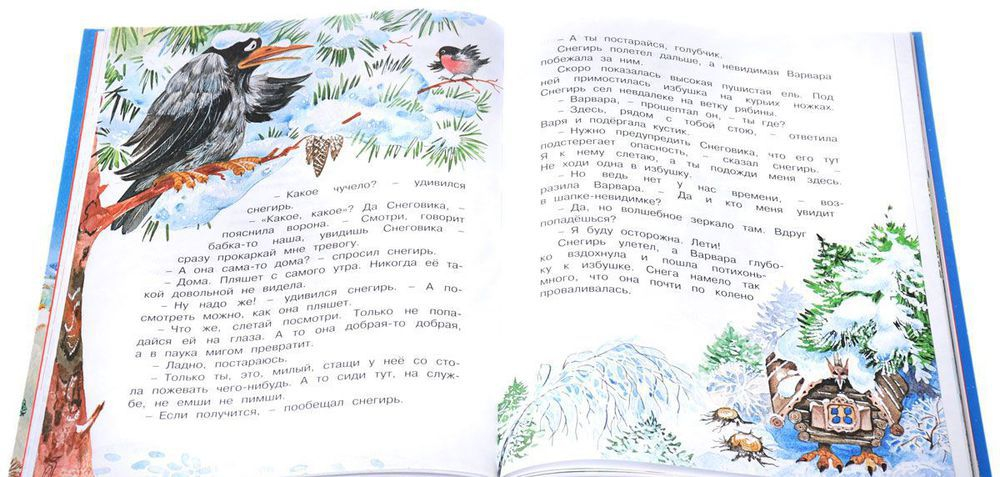 – Какое чучело? – удивился
снегирь.
– «Какое, какое»? Да Снеговика, –
пояснила ворона. – Смотри, говорит
бабка-то наша, увидишь Снеговика –
сразу прокаркай мне тревогу.
– А она сама-то дома? – спросил снегирь.
– Дома. Пляшет с самого утра. Никогда её та-
кой довольной не видела.
– Ну надо же! – удивился снегирь. – А по-
смотреть можно, как она пляшет.
– Что же, слетай посмотри. Только не попа-
дайся ей на глаза. А то она добрая-то добрая,
а в паука мигом превратит.
– Ладно, постараюсь.
– Только ты, это, милый, стащи у неё со сто-
ла пожевать чего-нибудь. А то сиди тут, на служ-
бе, не емши не пимши.
– Если получится, – пообещал снегирь.
– А ты постарайся, голубчик.
Снегирь полетел дальше, а невидимая Варвара
побежала за ним.
Скоро показалась высокая пушистая ель. Под
ней примостилась избушка на курьих ножках.
Снегирь сел невдалеке на ветку рябины.
– Варвара, – прошептал он, – ты где?
– Здесь, рядом с тобой стою, – ответила
Варя и подёргала кустик.
– Нужно предупредить Снеговика, что его тут
подстерегает опасность, – сказал снегирь. –
Я к нему слетаю, а ты подожди меня здесь.
Не ходи одна в избушку.
– Но ведь нет у нас времени, – воз-
разила Варвара. – Да и кто меня увидит
в шапке-невидимке?
– Да, но волшебное зеркало там. Вдруг
попадёшься?
– Я буду осторожна. Лети!
Снегирь улетел, а Варвара глубо-
ко вздохнула и пошла потихонь-
ку к избушке. Снега намело так
много, что она почти по колено
проваливалась.